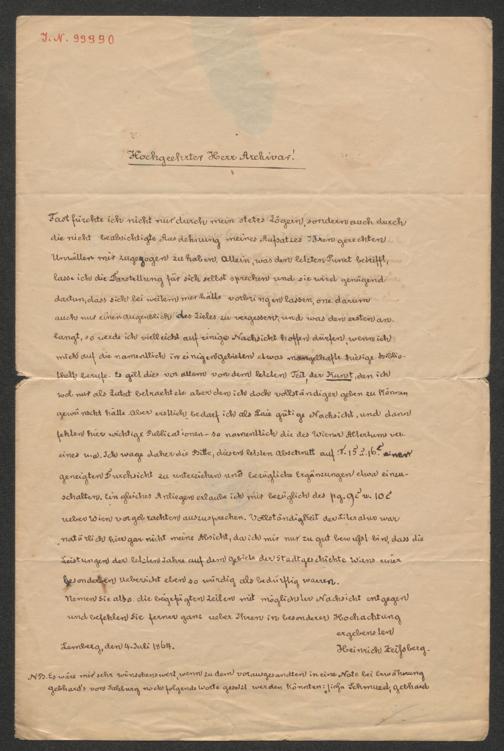 J. N. 99990
Hochgeehrter Herr Archivar!
Fast fürchte ich nicht nur durch mein stetes Zögern, sondern auch durch
die nicht beabsichtigte Ausdehnung meines Aufsatzes Ihren gerechten
Unwillen mir zugezogen zu haben. Allein, was den letzten Punct betrifft,
lasse ich die Darstellung für sich selbst sprechen und sie wird genügend
dartun, dass sich bei weitem mer hätte vorbringen lassen, one darum
auch nur einen Augenblick des Zieles zu vergessen, und was den ersten an
langt, so werde ich vielleicht auf einige Nachsicht hoffen dürfen, wenn ich
mich auf die namentlich in einigen gebieten etwas mangelhafte hiesige biblio-
thek berufe. Es gilt dies vor allem von dem letzten Teil, der Kunst, den ich
wol nur als Zutat betrachtete aber den ich doch vollständiger geben zu können
gewünscht hätte. Aber erstlich bedarf ich als Laie gütige Nachsicht, und dann
fehlen hier wichtige Publicationen - so namentlich die des Wiener Altertumsver-
eines u.a. Ich wage daher die Bitte, diesen letzten Abschnitt auf S. 15 S. 16 einer
geneigten Durchsicht zu unterziehen und bezügliche Ergänzungen etwa einzu-
schalten. Ein gleiches Anliegen erlaube ich mir bezüglich des pg. 9 u. 10
ueber Wien vorgebrachten auszusprechen. Vollständigkeit der Literatur war
natürlich hier gar nicht meine Absicht, da ich mir nur zu gut bewusst bin, dass die
Leistungen der letzten Jahre auf dem gebiete der Stadtgeschichte Wiens einer
besonderen Uebersicht eben so würdig als bedürftig waren.
Nemen Sie also die beigefügten Zeilen mit möglichster Nachsicht entgegen
und befehlen Sie ferner ganz ueber Ihren in besonderer Hochachtung
ergebensten
Lemberg, den 4. Juli 1864. Heinrich Zeissberg.
NB. Es wäre mir sehr wünschenswert, wenn zu dem vorausgesandten in eine Note bei Erwähnung
gebhard's von Salzburg noch folgende Worte gesetzt werden könnten: Schmued, gebhard